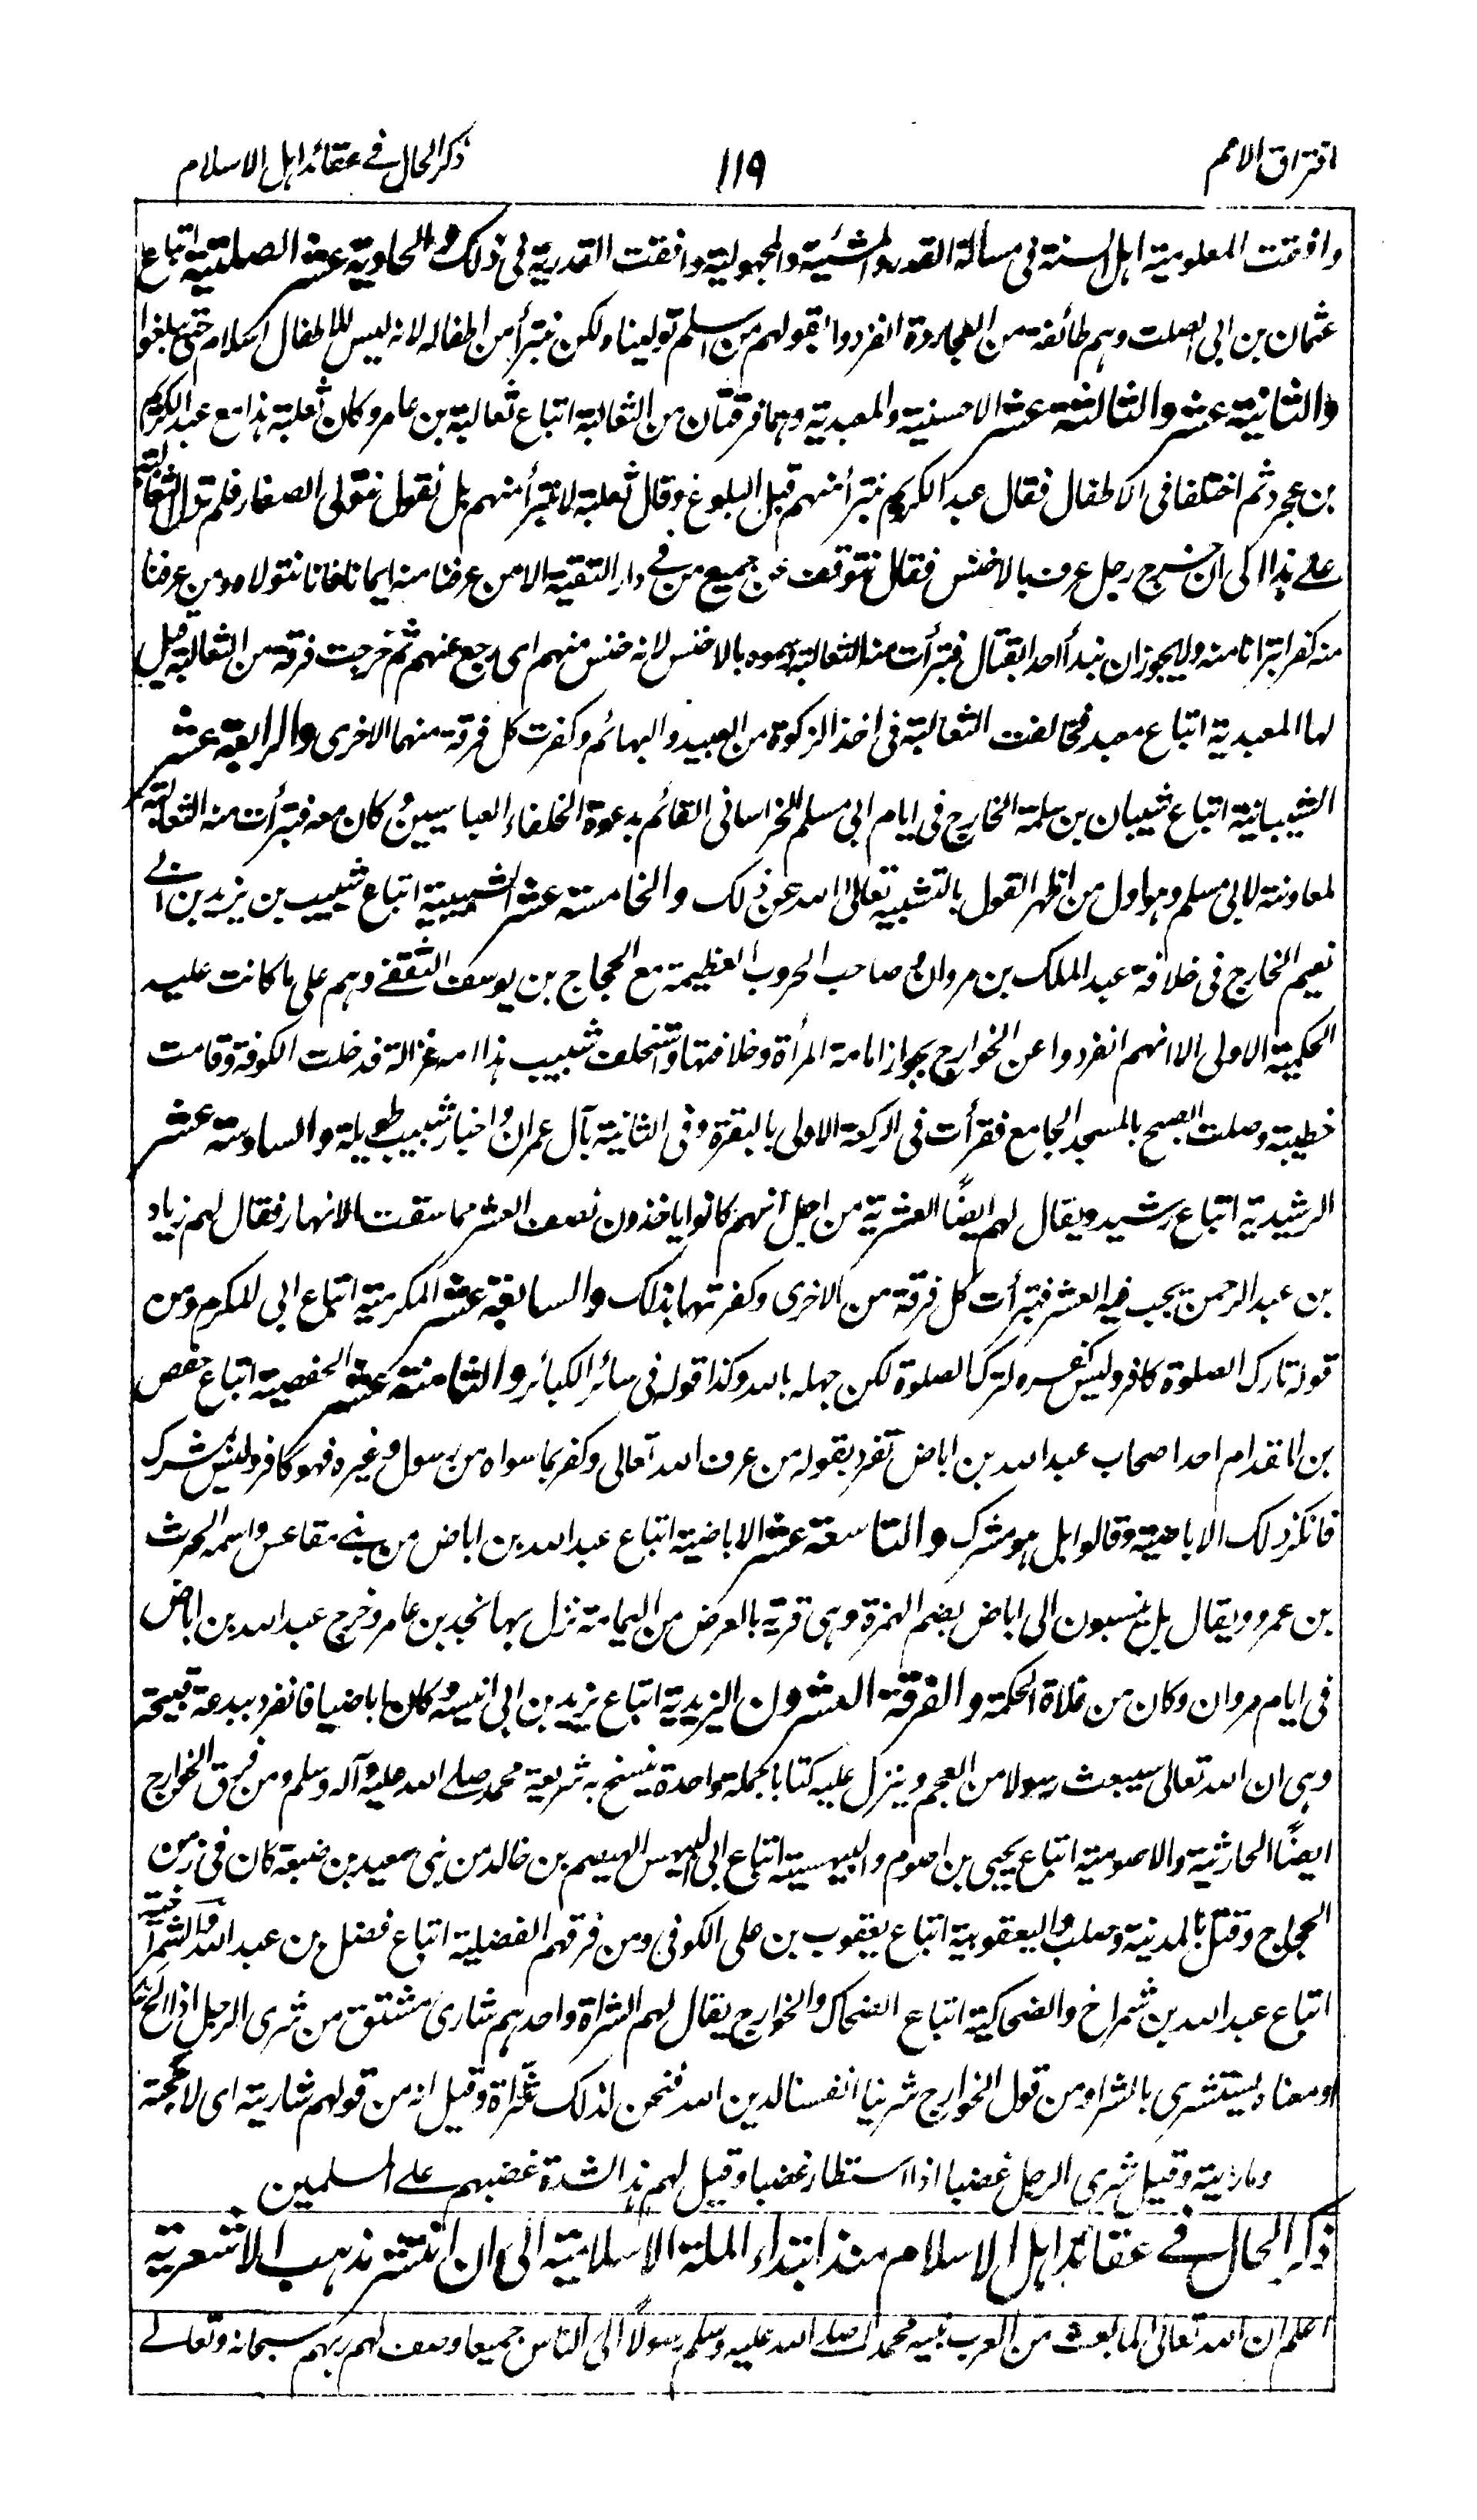 افتراق الامم ۱۱۹ ذكر الحال فے عقائد اهل الاسلام
وافقت المعلومية اهل السنة فى مسألة القدر والمشئية والمجهولية وافقت القدرية فى ذلك والحادية عشر الصلتية اتباع
عثمان بن ابى الصلت وهم طائفة من العجاردة انفردوا بقولهم من اسلم تولينا ولكن نتبرأ من اطفاله لانه ليس للاطفال اسلام حتى يبلغوا
والثانية عشر والثالثة عشر الاخنسية والمعبدية وهما فرقتان من الثعالبة اتباع ثعالبة بن عامر وكان ثعلبة هذا مع عبد الكريم
بن عجرد ثم اختلفا فى الاطفال فقال عبد الكريم نتبرأ منهم قبل البلوغ وقال ثعلبة لا نتبرأ منهم بل نقول نتولى الصغار فلم تزل الثعالبة
على هذا الى ان خرج رجل عرف بالاخنس فقال نتوقف عن جميع من فے دار التقية الا من عرفنا منه ايمانا فانا نتولاه ومن عرفنا
منه كفرا تبرانا منه ولا يجوز ان نبدأ احدا بقتال فتبرأت منه الثعالبة وسموه بالاخنس لانه خنس منهم اى رجع عنهم ثم خرجت فرقة من الثعالبة قيل
لها المعبدية اتباع معبد فخالفت الثعالبة فى اخذ الزكوة من العبيد والبهائم وكفرت كل فرقة منهما الاخرى والرابعة عشر
الشيبانية اتباع شيبان بن سلمة الخارج فى ايام ابى مسلم الخراسانى القائم بدعوة الخلفاء العباسيين وكان معه فتبرأت منه الثعالبة
لمعاونته لابى مسلم وهو اول من اظهر القول بالتشبيه تعالى الله عن ذلك والخامسة عشر الشبيبية اتباع شبيب بن يزيد بن ابے
نعيم الخارج فى خلافة عبد الملك بن مروان و صاحب الحروب العظيمة مع الحجاج بن يوسف الثقفے وهم على ما كانت عليه
الحكمية الاولى الا انهم انفردوا عن الخوارج بجواز امامة المرأة وخلافتها واستخلف شبيب هذا امه غزالة فدخلت الكوفة وقامت
خطيبة وصلت الصبح بالمسجد الجامع فقرأت فى الركعة الاولى بالبقرة وفى الثانية بآل عمران واخبار شبيب طويلة والسادسة عشر
الرشيدية اتباع رشيد ويقال لهم ايضًا العشرية من اجل انهم كانوا ياخذون نصف العشر مما سقت الانهار فقال لهم زياد
بن عبد الرحمن يجب فيه العشر فتبرأت كل فرقة من الاخرى وكفرتها بذلك والسابعة عشر المكرمية اتباع ابى المكرم ومن
قوله تارك الصلوة كافر وليس كفره لترك الصلوة لكن جهله بالله وكذا قوله فى سائر الكبائر والثامنة عشر الحفصية اتباع حفص
بن المقدام احد اصحاب عبد الله بن اباض تفرد بقوله من عرف الله تعالى وكفر بما سواه من رسول وغيره فهو كافر وليس بمشرك
فانكر ذلك الاباضية وقالوا بل هو مشرك والتاسعة عشر الاباضية اتباع عبد الله بن اباض من بنے مقاعس واسمه الحرث
بن عمرو ويقال بل ينسبون الى اباض بضم الهمزة وهى قرية بالعرض من اليمامة نزل بها نجد بن عامر وخرج عبد الله بن اباض
فى ايام مروان وكان من غلاة المحكمة والفرقة العشرون اليزيدية اتباع يزيد بن ابى انيسة وكان اباضيا فانفرد ببدعة قبيحة
وهى ان الله تعالى سيبعث رسولا من العجم وينزل عليه كتابا جملة واحدة ينسخ به شريعة محمد صلے الله عليه وآله وسلم ومن فرق الخوارج
ايضًا الحارثية والاصومية اتباع يحيى بن اصوم والبيهسية اتباع ابى البيهس الهيصم بن خالد من بنى سعيد بن ضبعة كان فى زمن
الحجاج وقتل بالمدينة وصلب واليعقوبية اتباع يعقوب بن على الكوفى ومن فرقهم الفضلية اتباع فضل بن عبد الله والشمراخية
اتباع عبد الله بن شمراخ والضحاكية اتباع الضحاك والخوارج يقال لهم الشراة واحدهم شارى مشتق من شرى الرجل اذا الح
او معناه يستشرى بالشر او من قول الخوارج شرينا انفسنا لدين الله فنحن لذلك شراة وقيل انه من قولهم شاريته اى لاججته
وماريته وقيل شرى الرجل غضبا اذا استطار غضبا وقيل لهم هذا لشدة غضبهم على المسلمين
ذكر الحال فے عقائد اهل الاسلام منذ ابتداء الملة الاسلامية الى ان انتشر مذهب الاشعرية
اعلم ان الله تعالى لما بعث من العرب نبيه محمدا صلے الله عليه وسلم رسولًا الى الناس جميعا وصف لهم ربهم سبحانه وتعالے